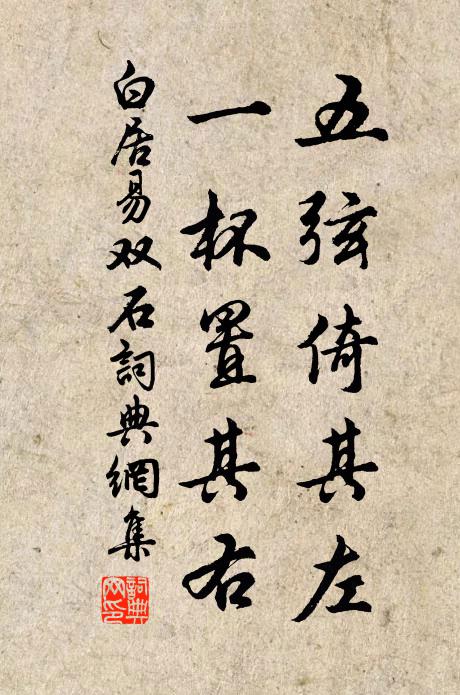 五弦倚其左
一杯置其右
白居易双石詞典網集
詞典网印